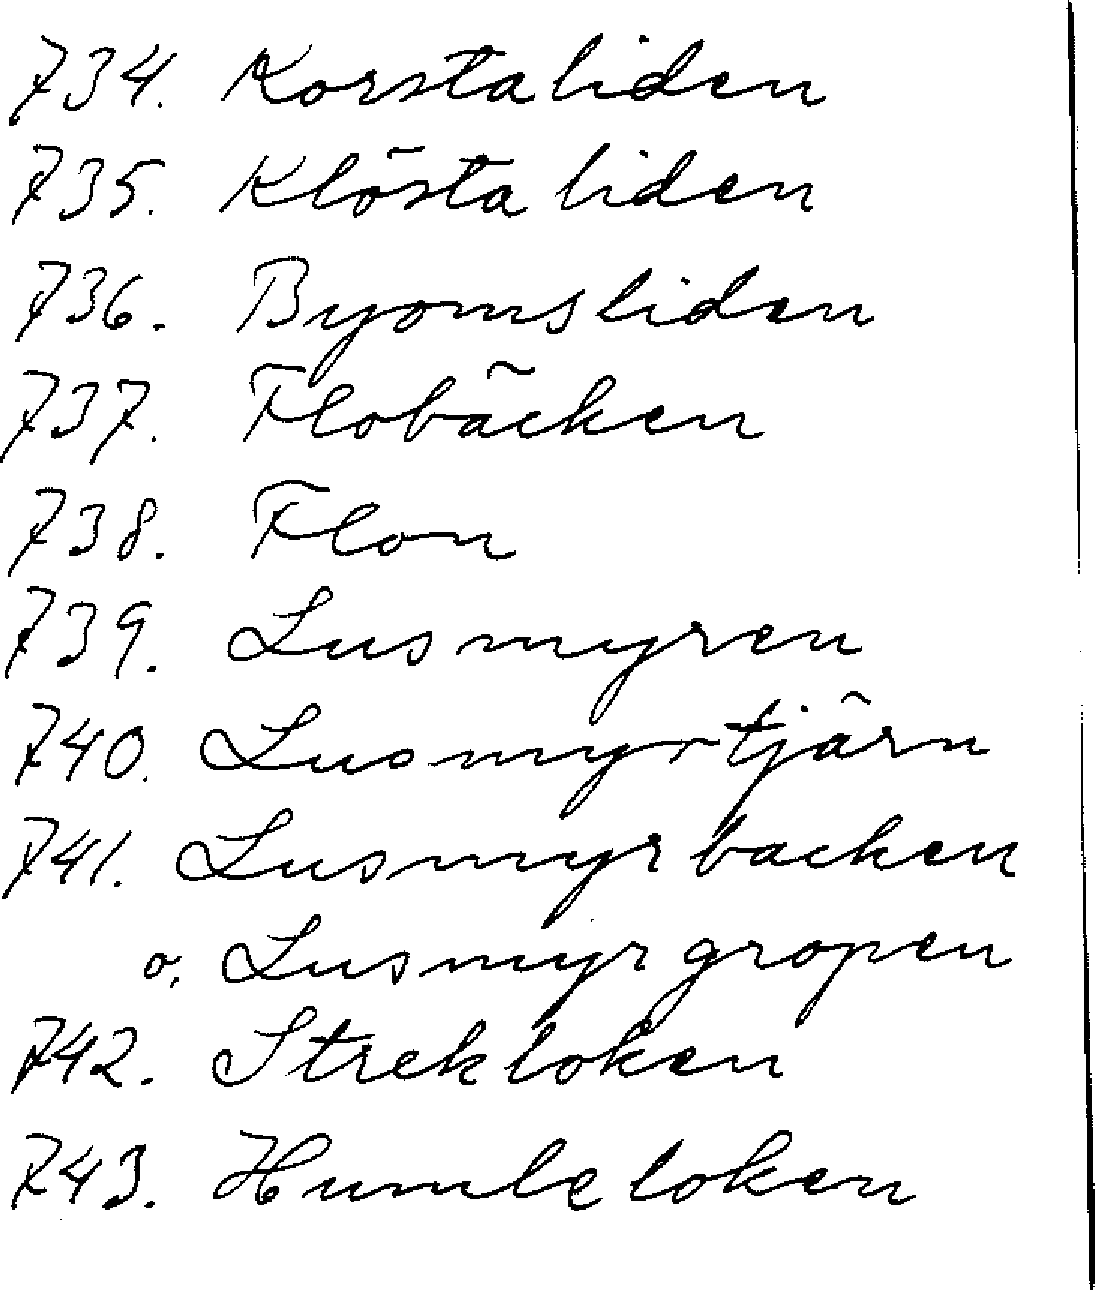 734. Korstaliden
735. Klöstaliden
736. Byomsliden
737. Flobäcken
738. Flon
739. Lusmyren
740. Lusmyrtjärn
741. Lusmyrbacken
o. Lusmyrgropen
742. Strekloken
743. Humleloken